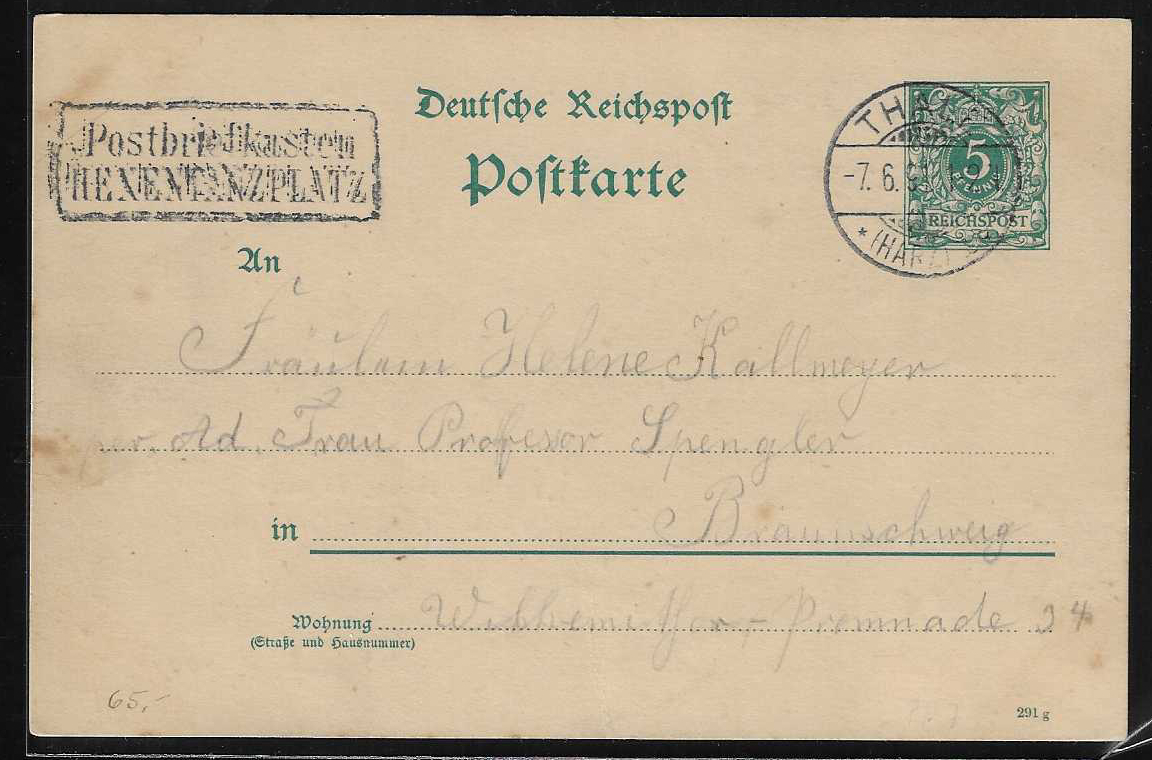 Deutsche Reichspost
Postkarte
Postbriefkasten
HEXENTANZPLATZ
THALE
-7. 6.
* (HARZ)
5
PFENNIG
REICHSPOST
An
Fräulein Helene Kallmeyer
Ad. Frau Professor Spengler
in Braunschweig
Wohnung Promnade 34
(Straße und Hausnummer)
65,-
291 g